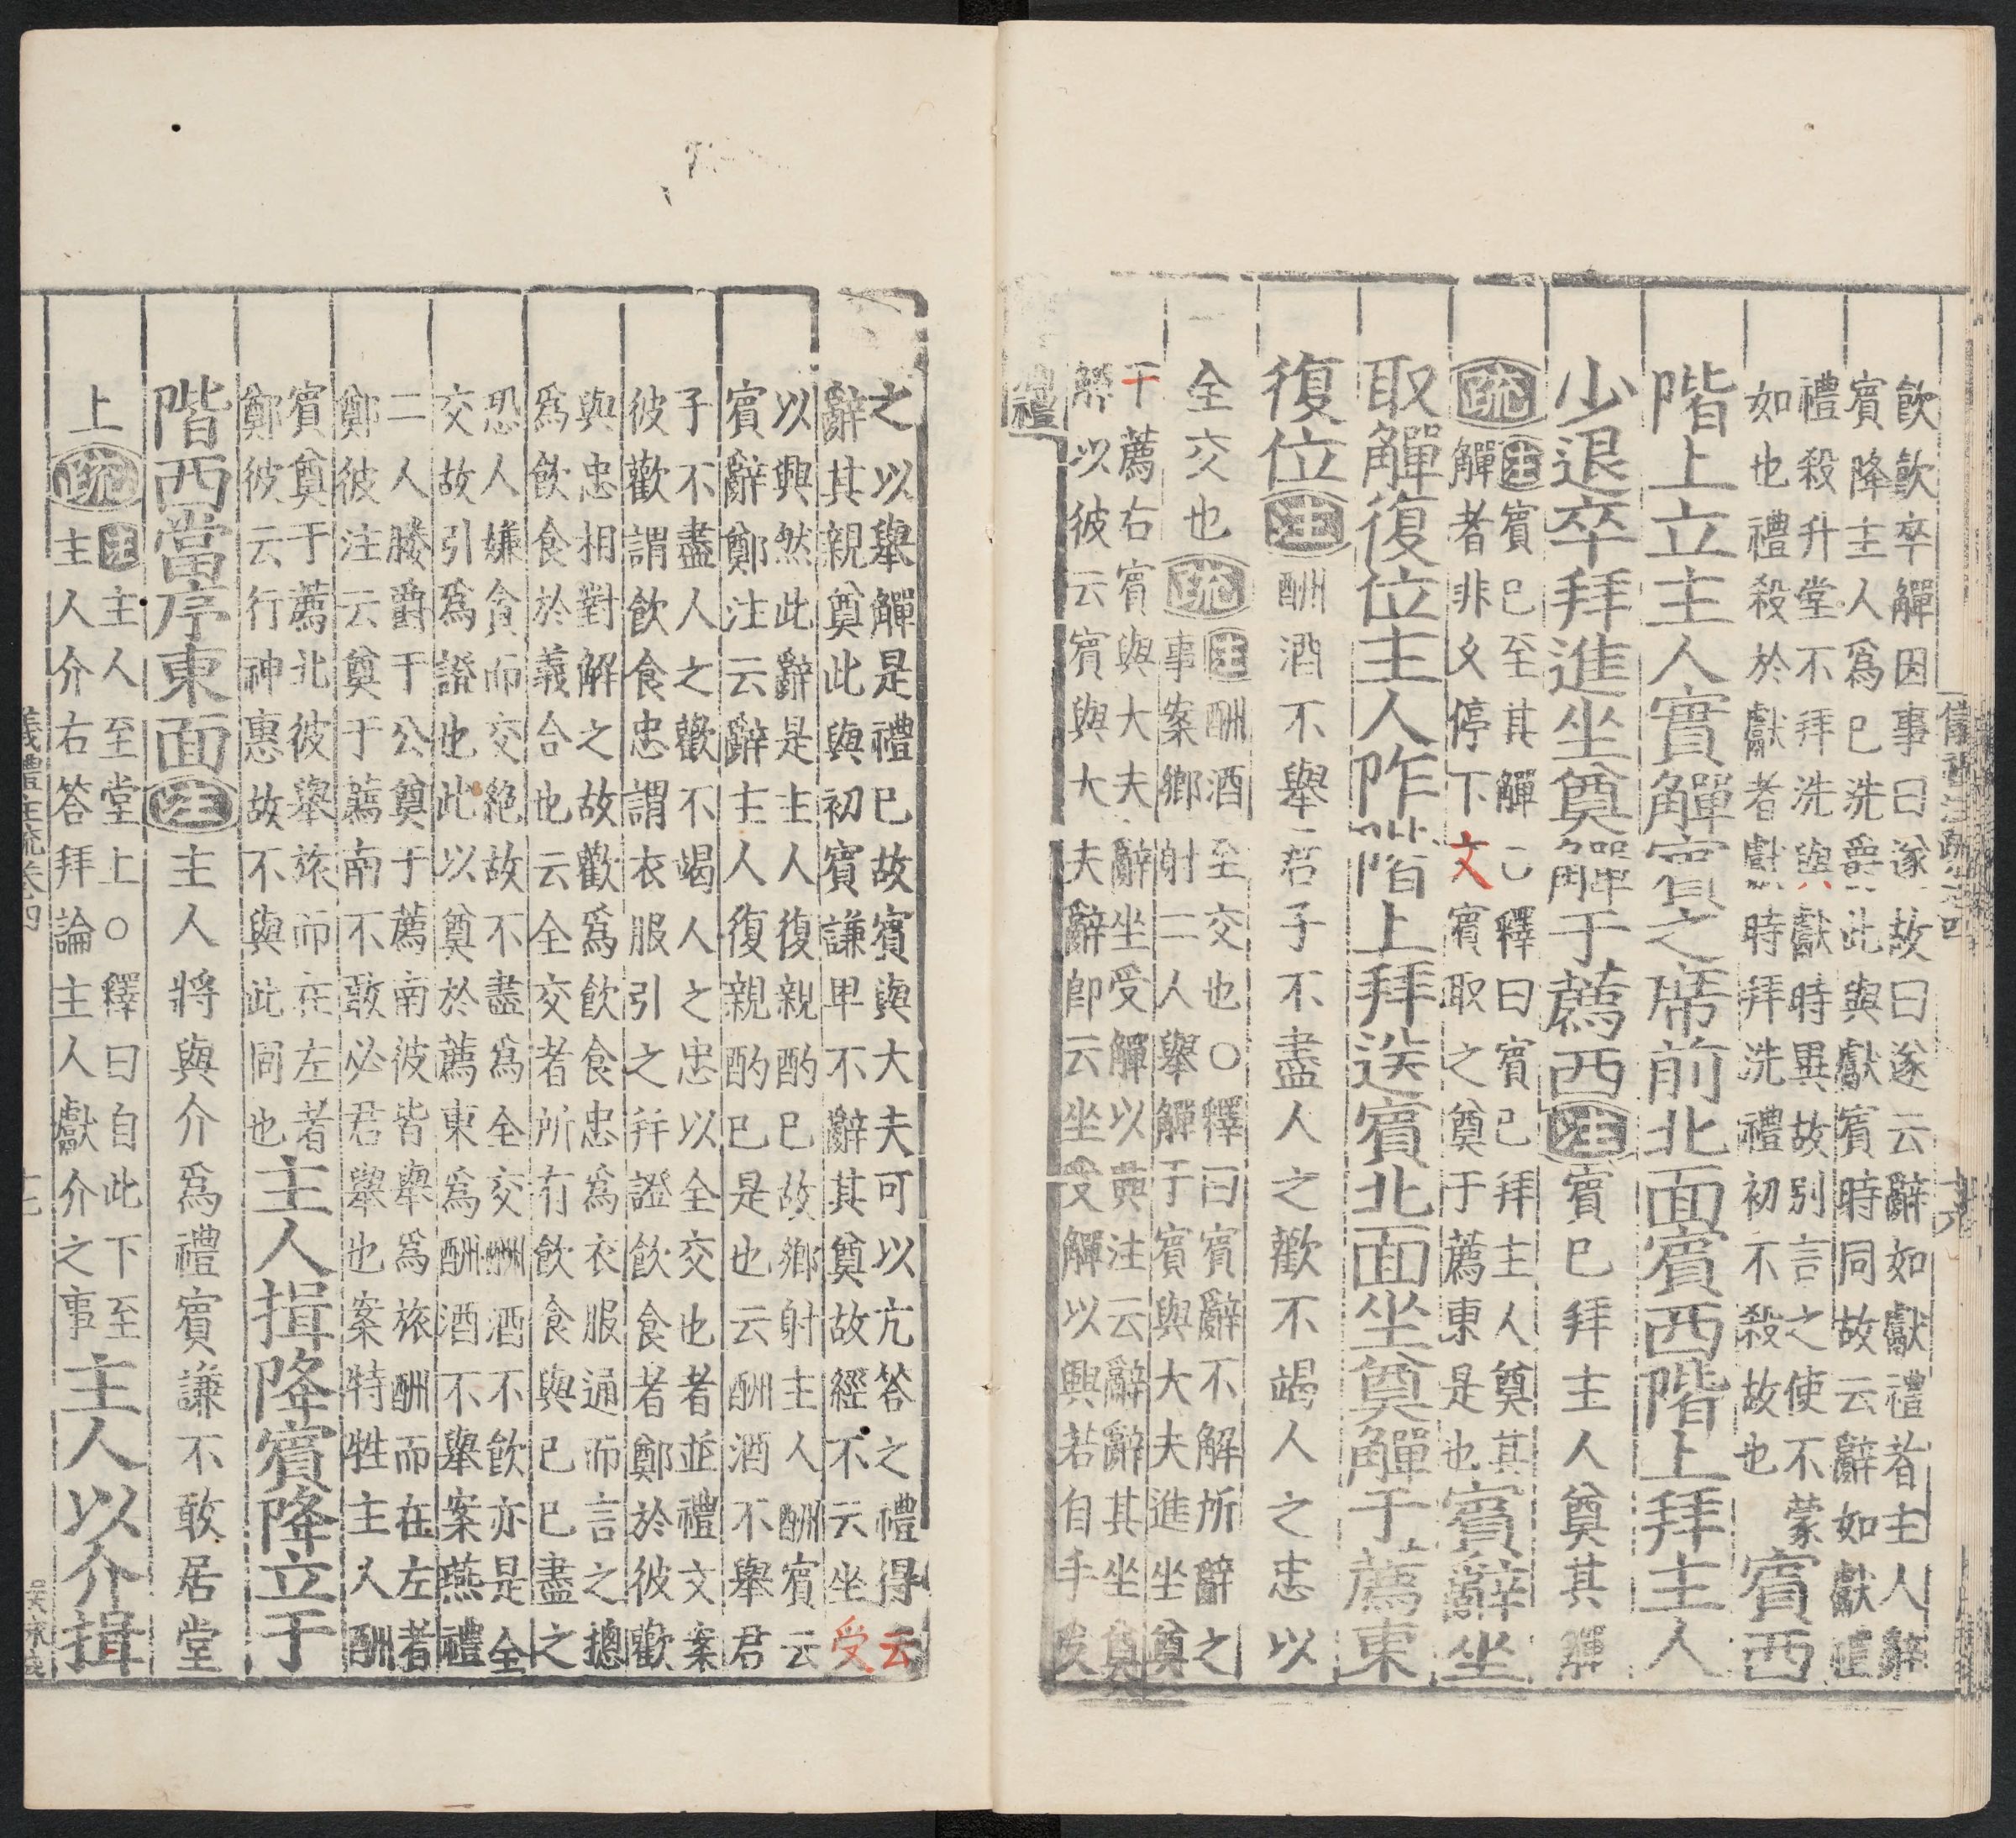 飲飲卒觶因事曰遂故曰遂云辭如獻禮者主人辭
賓降主人爲已洗爵此與獻賓時同故云辭如獻
禮殺升堂不拜洗與獻時異故別言之使不蒙
如也禮殺於獻者獻時拜洗禮初不殺故也賓西
階上立主人實觶賓之席前北面賓西階上拜主人
少退卒拜進坐奠觶于薦西注賓已拜主人奠其觶
疏注賓已至其觶○釋曰賓已拜主人奠其
觶者非久停下文賓取之奠于薦東是也賓辭坐
取觶復位主人阼階上拜送賓北面坐奠觶于薦東
復位注酬酒不舉君子不盡人之歡不竭人之忠以
全交也疏注酬酒至交也○釋曰賓辭不解所辭之
事案鄉射二人舉觶于賓與大夫進坐奠
于薦右賓與大夫辭坐受觶以興注云辭辭其坐奠
觶以彼云賓與大夫辭即云坐受觶以興若自手受
之以舉觶是禮已故賓與大夫可以亢答之禮得云
辭其親奠此與初賓謙卑不辭其奠故經不云坐受
以興然此辭是主人復親酌已故鄉射主人酬賓云
賓辭鄭注云辭主人復親酌已是也云酬酒不舉君
子不盡人之歡不竭人之忠以全交也者並禮文案
彼歡謂飲食忠謂衣服引之幷證飲食者鄭於彼歡
與忠相對解之故歡爲飲食忠爲衣服通而言之摠
爲飲食於義合也云全交者所有飲食與已已盡之
恐人嫌貪而交絶故不盡爲全交酬酒不飲亦是全
交故引爲證也此以奠於薦東爲酬酒不舉案燕禮
二人媵爵于公奠于薦南彼皆舉爲旅酬而在左者
鄭彼注云奠于薦南不敢必君舉也案特牲主人酬
賓奠于薦北彼舉旅而在左者
鄭彼云行神惠故不與此同也主人揖降賓降立于
階西當序東面注主人將與介爲禮賓謙不敢居堂
上疏注主人至堂上○釋曰自此下至
主人介右答拜論主人獻介之事主人以介揖